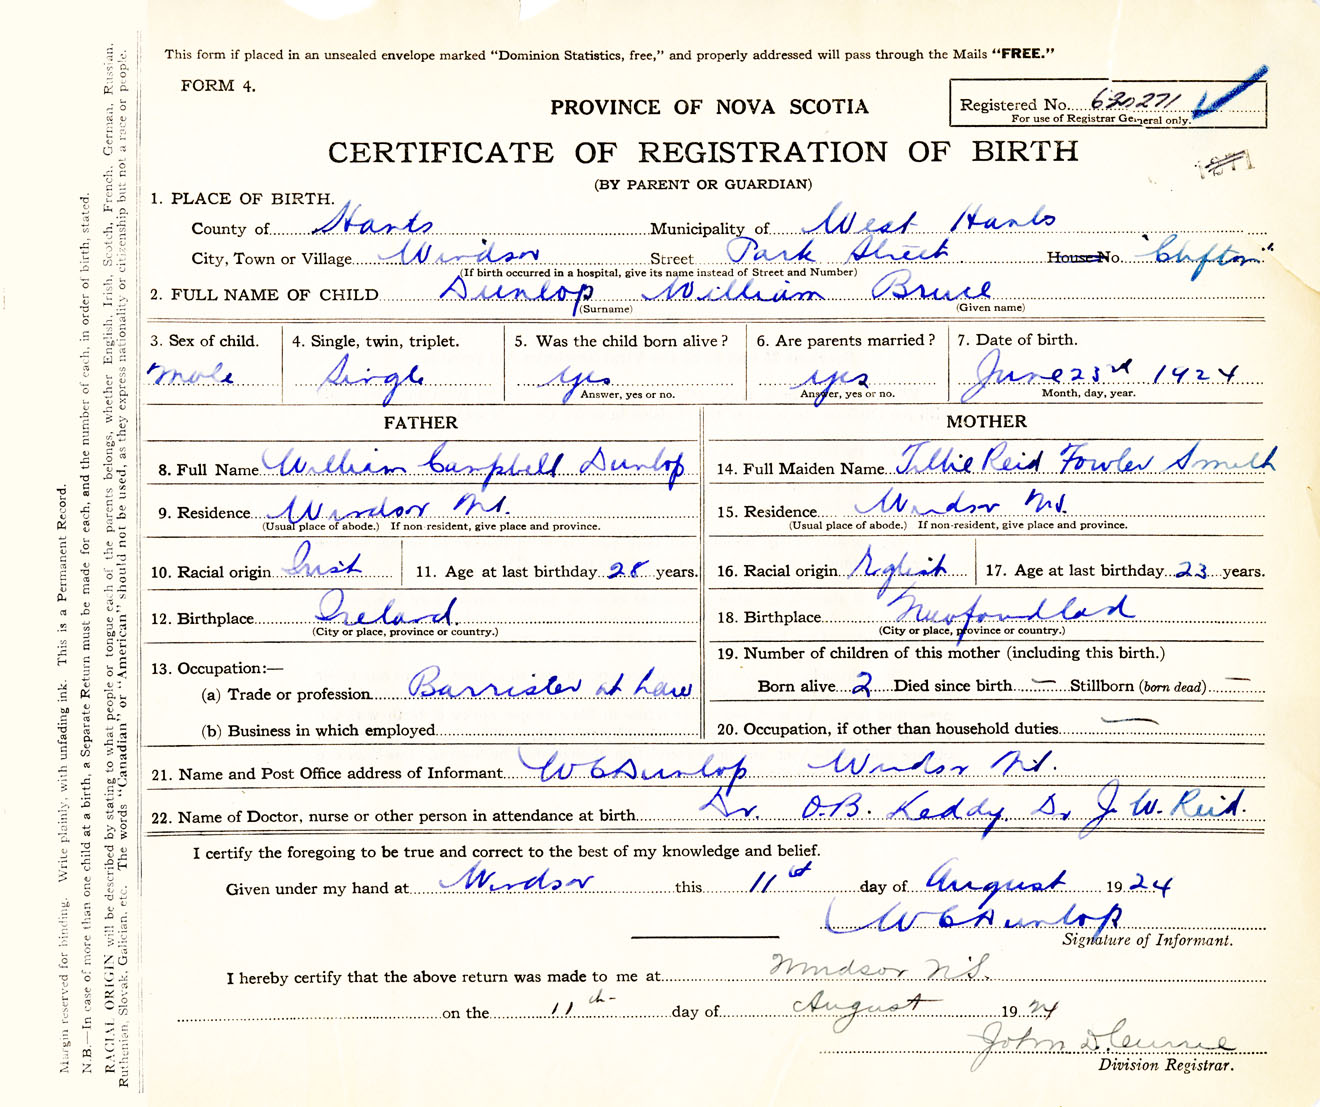 This form if placed in an unsealed envelope marked "Dominion Statistics, free," and properly addressed will pass through the Mails "FREE."
FORM 4.
PROVINCE OF NOVA SCOTIA
Registered No. 620271
For use of Registrar General only.
CERTIFICATE OF REGISTRATION OF BIRTH
(BY PARENT OR GUARDIAN)
1. PLACE OF BIRTH.
County of Hants Municipality of West Hants
City, Town or Village Windsor Street Park Street House No. "Clifton"
(If birth occurred in a hospital, give its name instead of Street and Number)
2. FULL NAME OF CHILD Dunlop William Bruce
(Surname) (Given name)
3. Sex of child. 4. Single, twin, triplet. 5. Was the child born alive? 6. Are parents married? 7. Date of birth.
Male Single yes yes June 23rd 1924
Answer, yes or no. Answer, yes or no. Month, day, year.
FATHER
8. Full Name William Campbell Dunlop
9. Residence Windsor N.S.
(Usual place of abode.) If non-resident, give place and province.
10. Racial origin Irish 11. Age at last birthday 28 years.
12. Birthplace Ireland.
(City or place, province or country.)
13. Occupation:—
(a) Trade or profession Barrister at Law
(b) Business in which employed
MOTHER
14. Full Maiden Name Tillie Reid Fowler Smith
15. Residence Windsor N.S.
(Usual place of abode.) If non-resident, give place and province.
16. Racial origin English 17. Age at last birthday 23 years.
18. Birthplace Newfoundlad
(City or place, province or country.)
19. Number of children of this mother (including this birth.)
Born alive 2 Died since birth — Stillborn (born dead) —
20. Occupation, if other than household duties —
21. Name and Post Office address of Informant W C Dunlop Windsor N.S.
22. Name of Doctor, nurse or other person in attendance at birth Dr. O.B. Keddy Dr J. W. Reid
I certify the foregoing to be true and correct to the best of my knowledge and belief.
Given under my hand at Windsor this 11th day of August 1924
W C Dunlop
Signature of Informant.
I hereby certify that the above return was made to me at Windsor N.S.
on the 11th day of August 1924
John D. Currie
Division Registrar.
Margin reserved for binding. Write plainly, with unfading ink. This is a Permanent Record.
N.B.—In case of more than one child at a birth, a Separate Return must be made for each, and the number of each, in order of birth, stated.
RACIAL ORIGIN will be described by stating to what people or tongue each of the parents belongs, whether English, Irish, Scotch, French, German, Russian,
Ruthenian, Slovak, Galician, etc. The words "Canadian" or "American" should not be used, as they express nationality or citizenship but not a race or people.